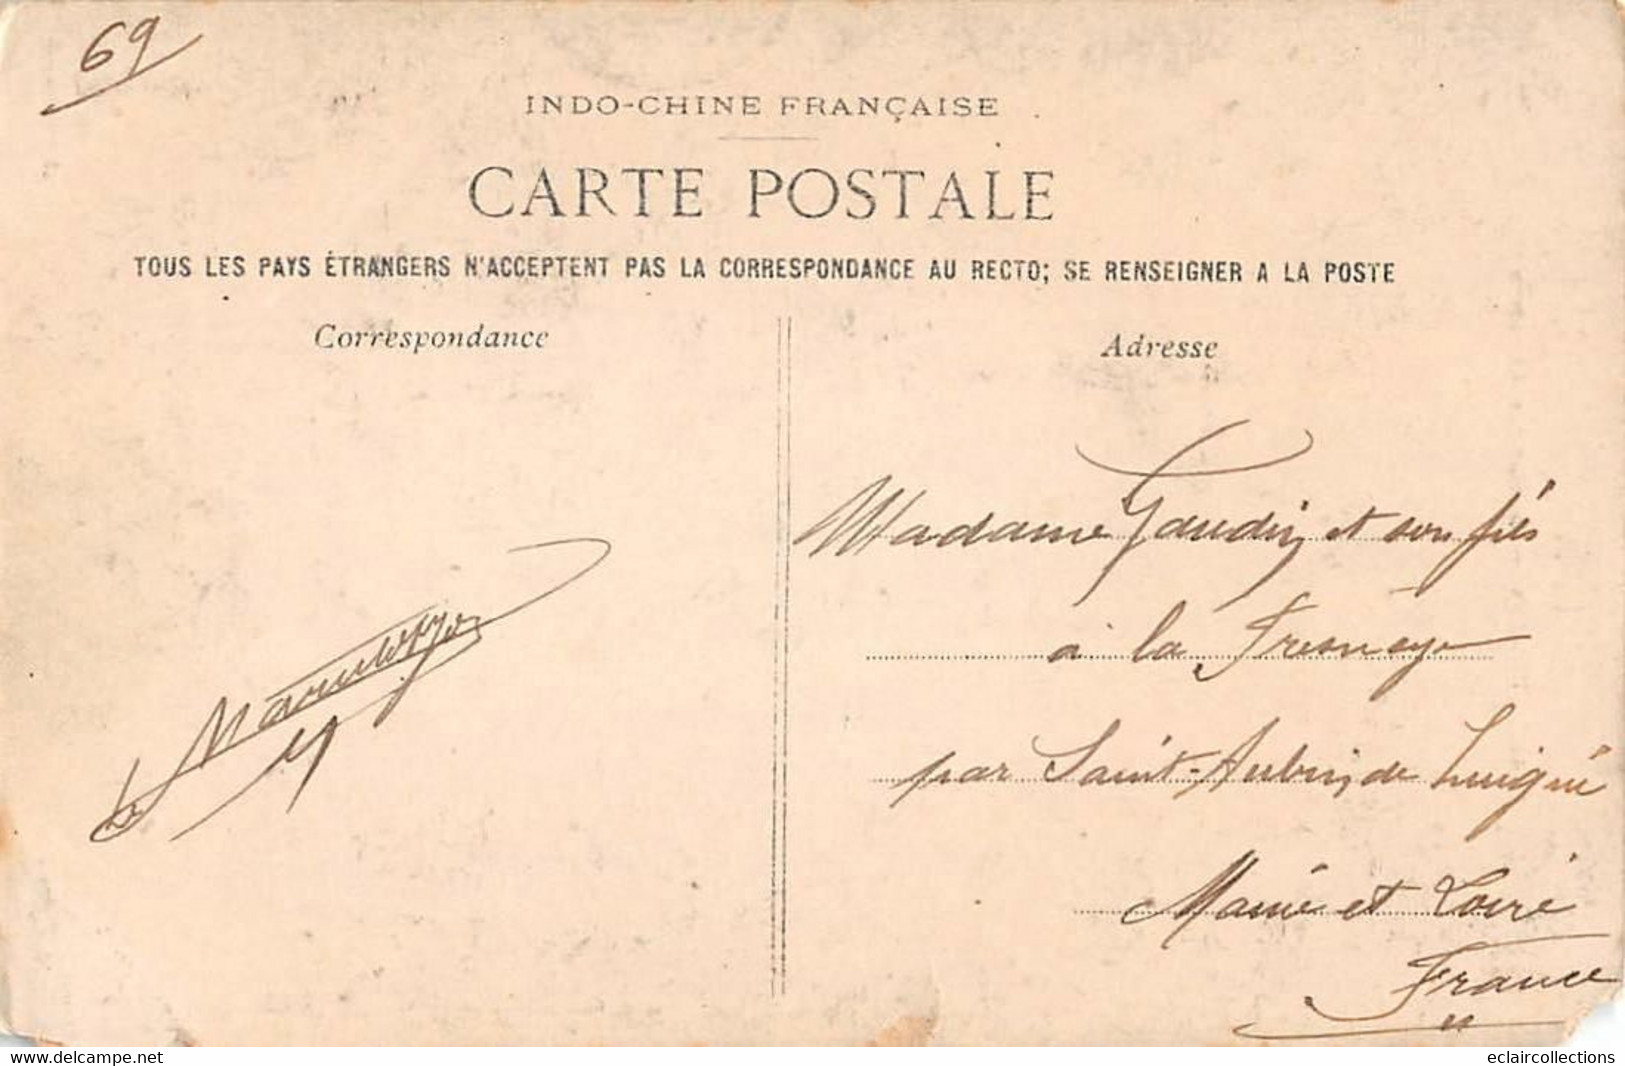 69
INDO-CHINE FRANÇAISE
CARTE POSTALE
TOUS LES PAYS ÉTRANGERS N'ACCEPTENT PAS LA CORRESPONDANCE AU RECTO; SE RENSEIGNER A LA POSTE
Correspondance
Adresse
Madame Gaudin et son fils
à la Fresnaye
par Saint-Aubin de Luigné
Maine et Loire
France
eclaircollections